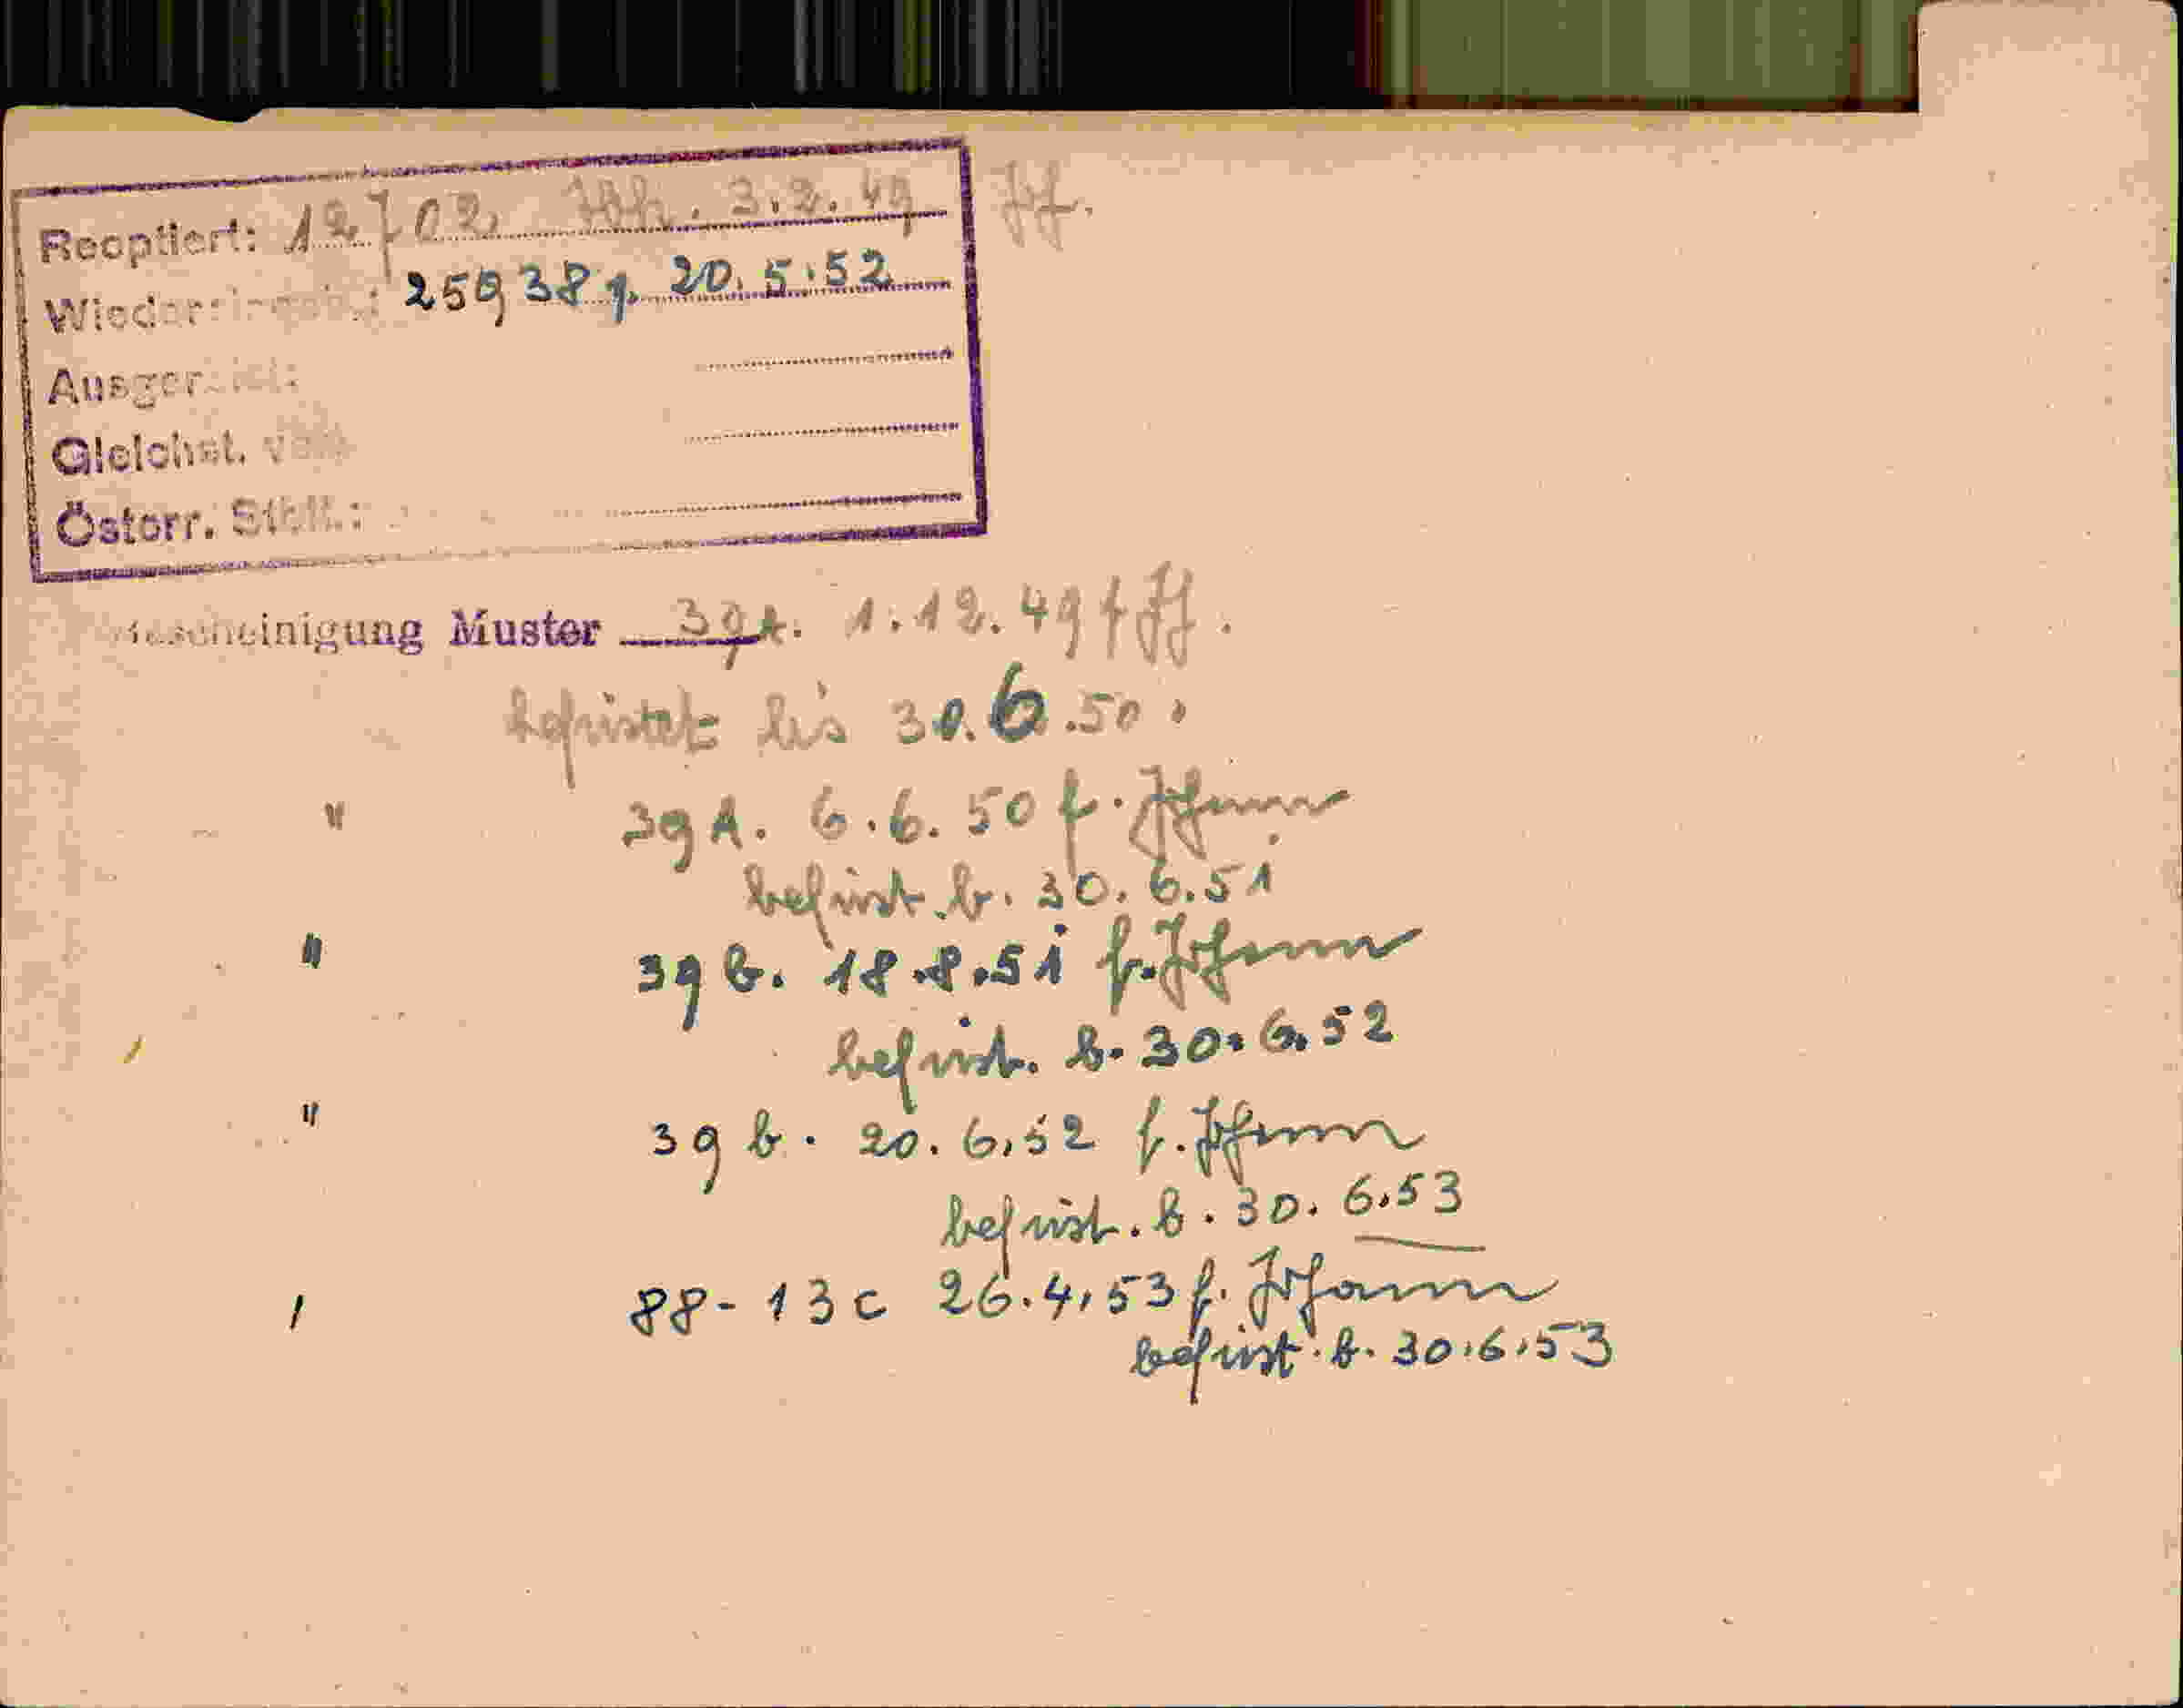 Reoptiert: 12702, 3.2.49
Wiedereingeb.: 25938 20.5.52
Ausgereist:
Gleichst. v.
Österr. Stb.:
Bescheinigung Muster 39A. 1.12.49 f
befristet bis 30.6.50.
" 39A. 6.6.50 f. Johann
befrist. b. 30.6.51
" 39 b. 18.8.51 f. Johann
befrist. b. 30.6.52
" 39 b. 20.6.52 f. Johann
befrist. b. 30.6.53
88-13c 26.4.53 f. Johann
befrist. b. 30.6.53